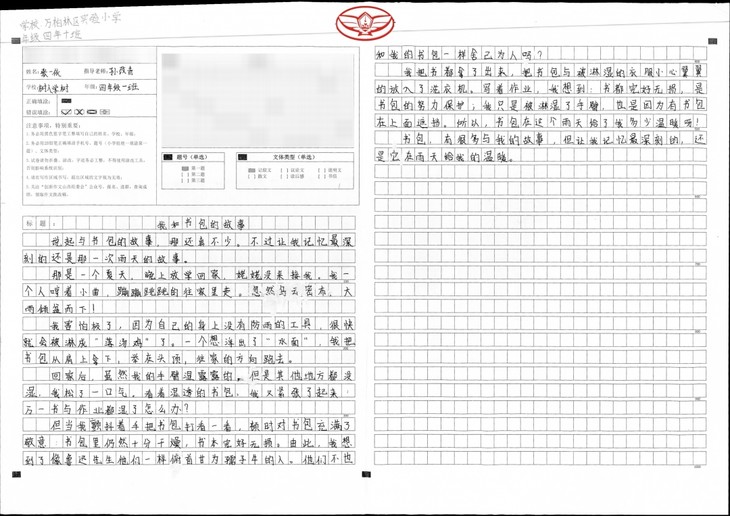 学校 万柏林区实验小学
年级 四年十班
指导老师:
学校:
年级: 四年级一班
正确填涂:
错误填涂:
注意事项，特别重要:
题号（单选）
第一题
第二题
第三题
文体类型（单选）
记叙文
议论文
说明文
散文
读后感
书信
标题: 我和书包的故事
说起与书包的故事，那还真不少。不过让我记忆最深
刻的还是那一次雨天的故事。
那是一个夏天，晚上放学回家，姥姥没来接我。我一
个人哼着小曲，蹦蹦跳跳的往家里走。忽然乌云密布，大
雨倾盆而下！
我害怕极了，因为自己的身上没有防雨的工具，很快
就会被淋成“落汤鸡”了。一个想法出了“水面”，我把
书包从肩上拿下，举在头顶，往家的方向跑去。
回家后，虽然我的手臂湿露露的。但是其他地方都没
湿，我松了一口气。看着湿透的书包，我又紧张了起来：
万一书与作业都湿了怎么办？
但当我颤抖着手把书包打看一看，顿时对书包充满了
敬意：书包里仍然十分干燥，书本完好无损。由此，我想
到了像鲁迅先生他们一样俯首甘为孺子牛的人。他们不也
和我的书包一样舍己为人吗？
我把书都拿了出来，把书包与被淋湿的衣服小心翼翼
的放入了洗衣机。写着作业，我想到：书都完好无损，是
书包的努力保护；我只是被淋湿了手臂，也是因为有书包
在上面遮挡。所以，书包在这个雨天给了我多少温暖啊！
书包，有很多与我的故事，但让我记忆最深刻的，还
是它在雨天给我的温暖。